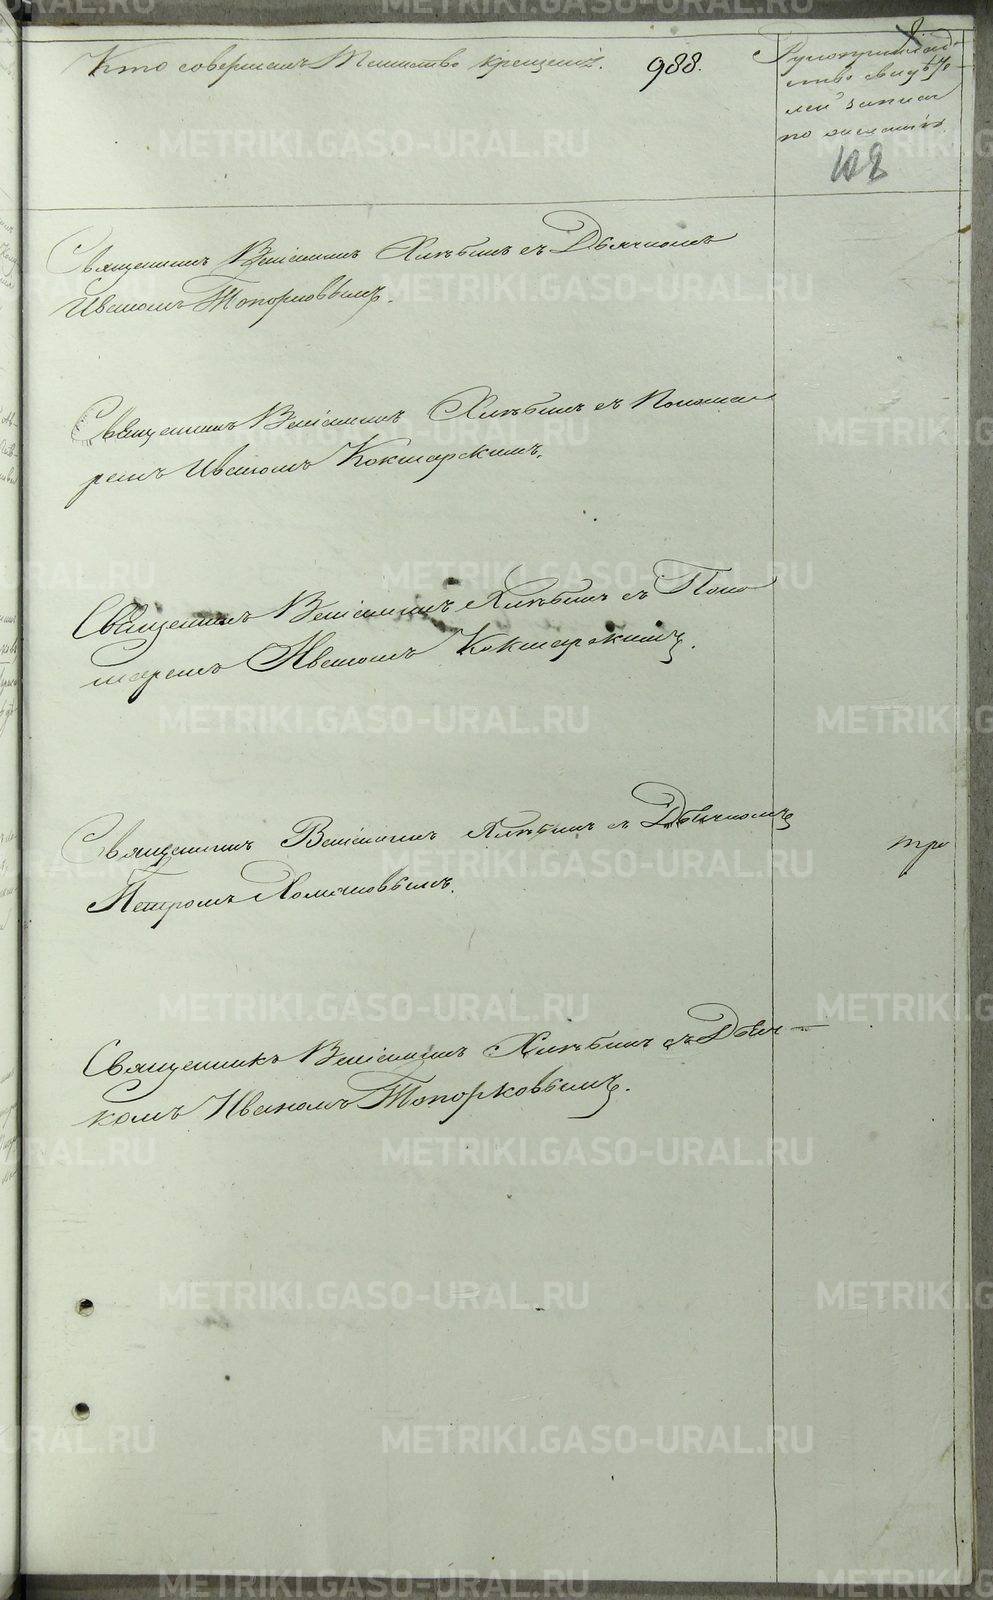 8
Кто совершалъ Таинство крещенія.
988.
Рукоприклад-
ство свидѣте-
лей записи
по желанію.
102
Священникъ Веніаминъ Хлѣбинъ съ Дьячкомъ
Иваномъ Топорковымъ.
Священникъ Веніаминъ Хлѣбинъ съ Понома-
ремъ Иваномъ Кокшарскимъ.
Священникъ Веніаминъ Хлѣбинъ съ Поно
маремъ Иваномъ Кокшарскимъ.
Священникъ Веніаминъ Хлѣбинъ съ Дьячкомъ
Петромъ Хомяковымъ.
Священникъ Веніаминъ Хлѣбинъ съ Дьяч-
комъ Иваномъ Топорковымъ.
METRIKI.GASO-URAL.RU